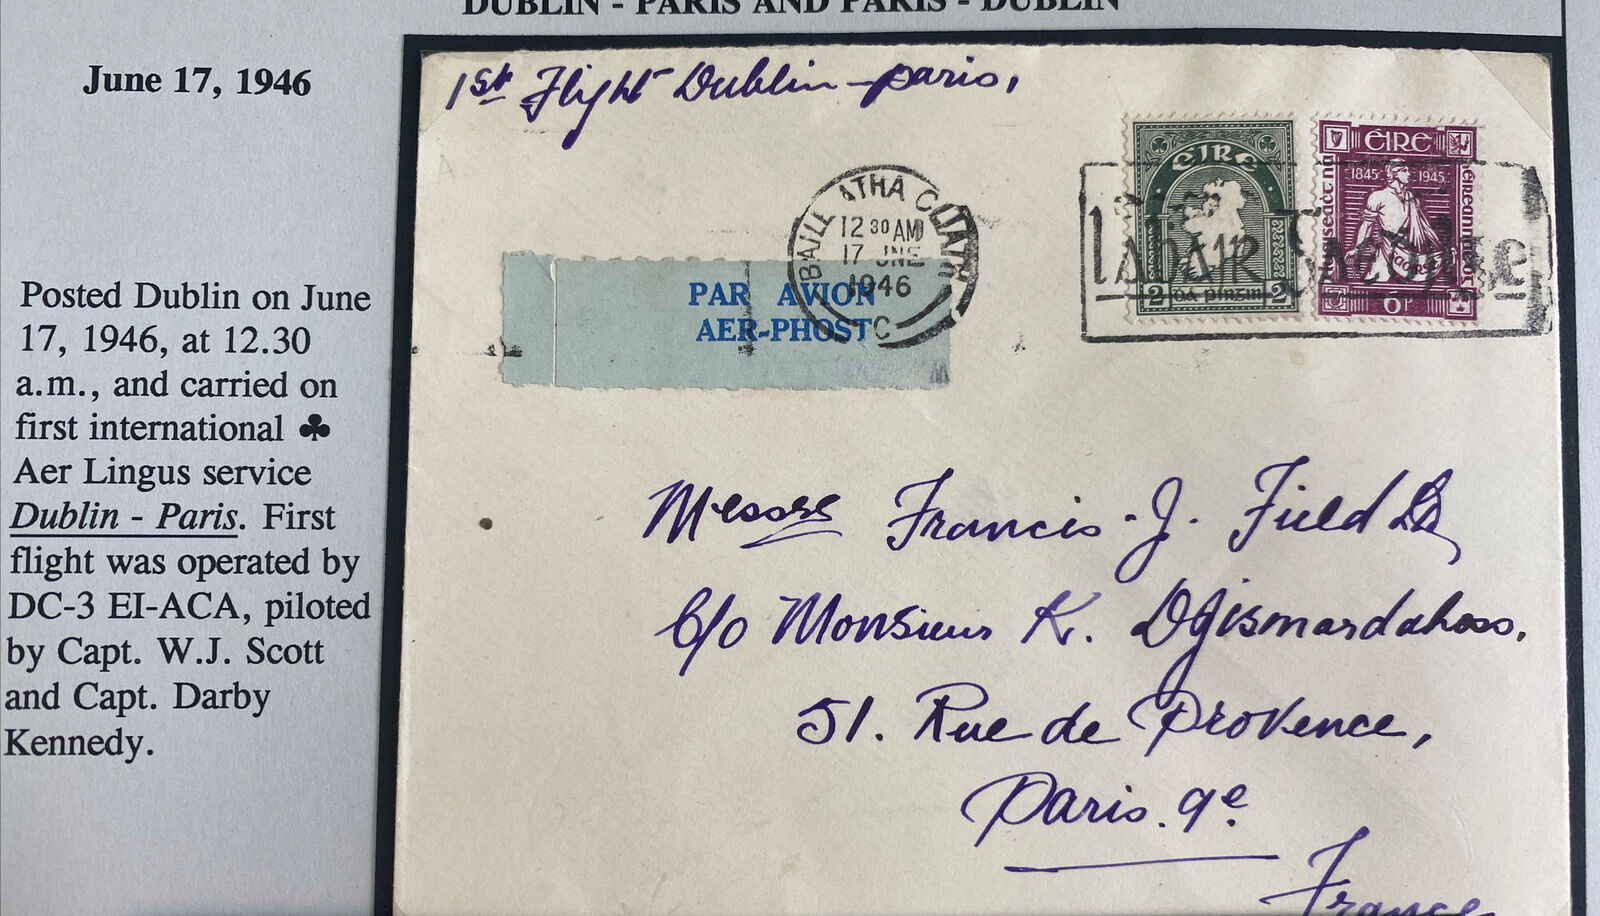 DUBLIN - PARIS AND PARIS - DUBLIN
June 17, 1946
Posted Dublin on June
17, 1946, at 12.30
a.m., and carried on
first international ♣
Aer Lingus service
Dublin - Paris. First
flight was operated by
DC-3 EI-ACA, piloted
by Capt. W.J. Scott
and Capt. Darby
Kennedy.
1st Flight Dublin - Paris,
BAILE ATHA CLIATH
12 30 AM
17 JNE
1946
C
PAR AVION
AER-PHOST
ÉIRE
2 DÁ PINGIN 2
ÉIRE
1845 1945
6P
Labair Gaedhilge
Messrs Francis. J. Field Ld
C/o Monsieur K. Djismardahoss.
51. Rue de Provence,
Paris. 9e.
France